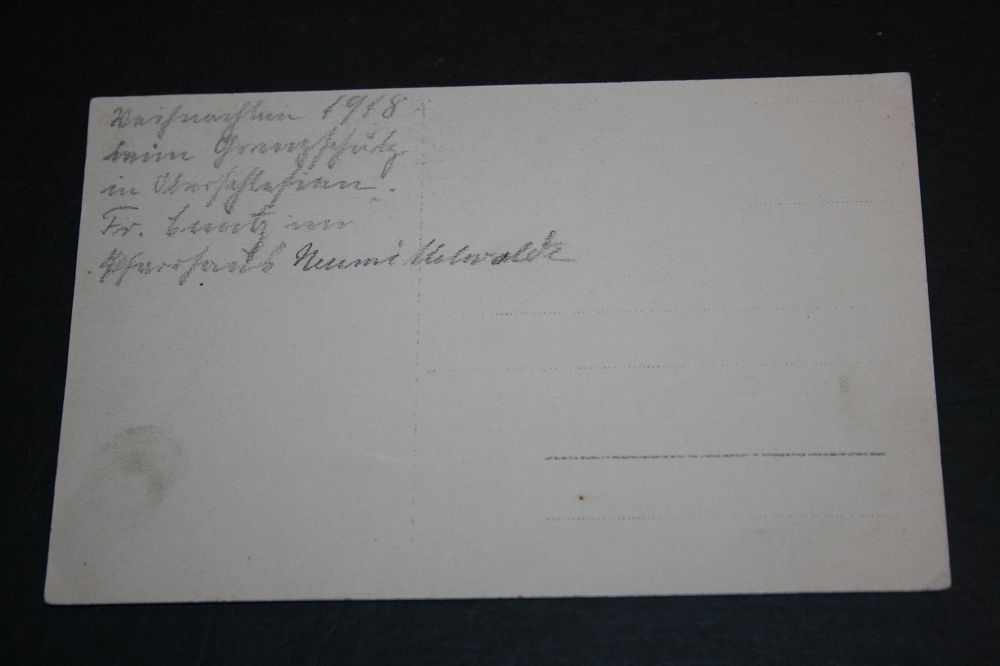 Weihnachten 1918
beim Grenzschutz
in Oberschlesien.
Fr. im
Pfarrhaus Neumittelwalde